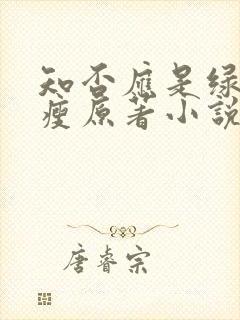 知否应是绿
瘦原著小说
唐睿宗